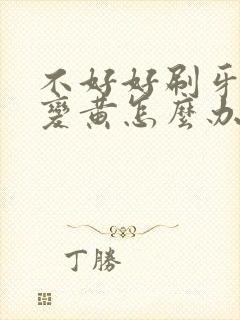 不好好刷牙
變黃怎麼办
丁勝